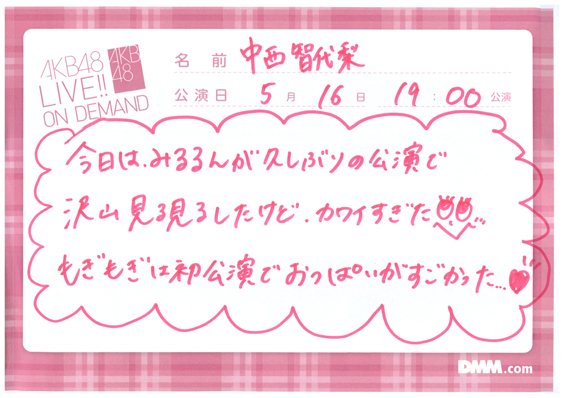 AKB48
LIVE!!
ON DEMAND
AKB
48
名前 中西智代梨
公演日 5月 16日 19:00公演
今日は、みるるんが久しぶりの公演で
沢山見る見るしたけど、カワイすぎた...
もぎもぎは初公演でおっぱいがすごかった...
DMM.com